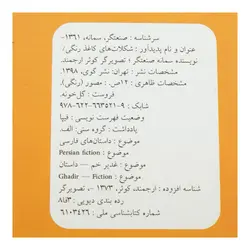 سرشناسه : صنعتگر، سمانه، ۱۳۶۱-
عنوان و نام پدیدآور : شکلات‌های کاغذ رنگی/
نویسنده سمانه صنعتگر؛ تصویرگر کوثر ارجمند.
مشخصات نشر : تهران: نشر گوی، ۱۳۹۸.
مشخصات ظاهری : ۱۲ص. : مصور (رنگی).
فروست : گل‌خونه.
شابک : ۹-۶۶۳۵۲۱-۶۲۲-۹۷۸
وضعیت فهرست نویسی : فیپا
یادداشت : گروه سنی : الف.
موضوع : داستان‌های فارسی
موضوع : Persian fiction
موضوع : غدیر خم — داستان
موضوع : Ghadir – Fiction
شناسه افزوده : ارجمند، کوثر، ۱۳۷۳ -، تصویرگر
رده بندی دیویی : ۸فا۳
شماره کتابشناسی ملی : ۶۱۰۳۴۲۶